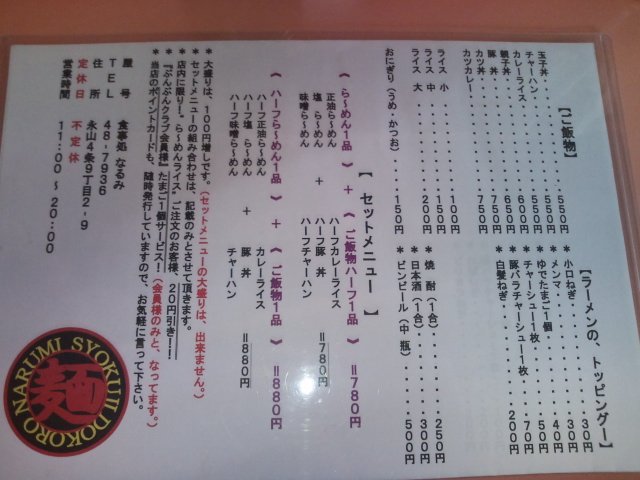 【ご飯物】
玉子丼・・・・・・・・・550円
チャーハン・・・・・・・550円
カレーライス・・・・・・550円
親子丼・・・・・・・・・600円
豚丼・・・・・・・・・・650円
カツ丼・・・・・・・・・750円
カツカレー・・・・・・・750円
ライス 小・・・・・・・・100円
ライス 中・・・・・・・・150円
ライス 大・・・・・・・・200円
おにぎり(うめ・かつお)・・・150円
【ラーメンの、トッピングー】
*小口ねぎ・・・・・・・30円
*メンマ・・・・・・・・30円
*ゆでたまご1個・・・・40円
*チャーシュー1枚・・・50円
*豚バラチャーシュー1枚・・70円
*白髪ねぎ・・・・・・・200円
*焼 酎(1合)・・・・250円
*日本酒(1合)・・・・300円
*ビンビール(中 瓶)・・・500円
【 セットメニュー 】
《 ら~めん1品 》 + 《 ご飯物ハーフ1品 》 =780円
正油ら~めん ハーフカレーライス
塩 ら~めん + ハーフ豚 丼 =780円
味噌ら~めん ハーフチャーハン
《 ハーフら~めん1品 》 + 《 ご飯物1品 》 =880円
ハーフ正油ら~めん カレーライス
ハーフ塩 ら~めん + 豚 丼 =880円
ハーフ味噌ら~めん チャーハン
* 大盛りは、100円増しです。(セットメニューの大盛りは、出来ません。)
* セットメニューの組み合わせは、記載のみとさせて頂きます。
* 店内に限り!、ら~めんライス”ご注文のお客様、20円引き!!
* 『ぶんぶんクラブ会員様』たまご1個サービス!(会員様のみと、なってます。)
* 当店のポイントカードも、随時発行していますので、お気軽に言って下さい。
屋 号 食事処 なるみ
TEL 48-7936
住 所 永山4条9丁目2-9
定休日 不定休
営業時間 11:00~20:00
NARUMI SYOKUJI DOKORO
麺